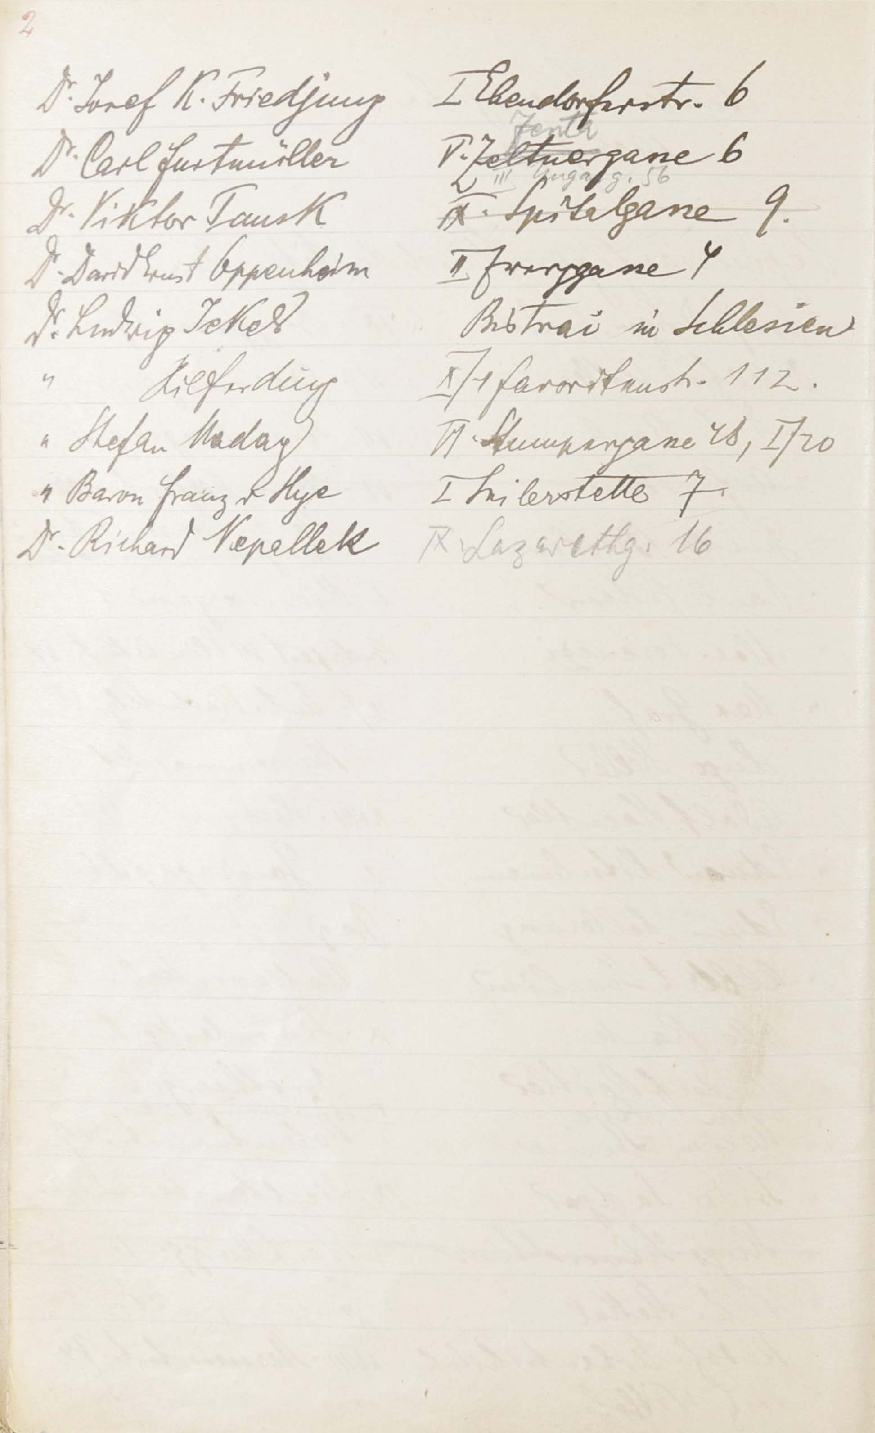 2
Dr. Josef K. Friedjung I Ebendorferstr. 6
Zenta
Dr. Carl Furtmüller V. Zeltnergasse 6
III Ungarg. 56
Dr. Viktor Tausk IX. Spitalgasse 9.
Dr. David Ernst Oppenheim II Zwerggasse 4
Dr. Ludwig Jekels Bistrai in Schlesien
" Hilferding X/1 Favoritenstr. 112.
" Stefan Maday VI. Stumpergasse 48, I/20
" Baron Franz v Hye I Seilerstette 7.
Dr. Richard Nepallek IX. Lazarethg. 16